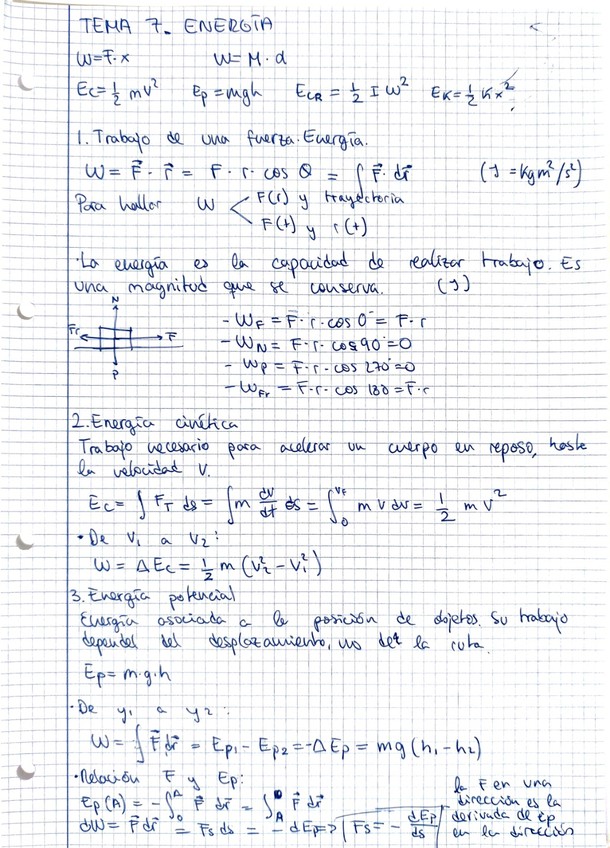 TEMA 7. ENERGÍA
W=F·x W=M·d
Ec=½ mv² Ep=mgh EcR = ½ I ω² EK=½ Kx²
1. Trabajo de una fuerza. Energía.
W = F⃗ · r⃗ = F · r · cos θ = ∫ F⃗ · dr⃗ (J = Kg m²/s²)
Para hallar W < F(r) y trayectoria
F(t) y r(t)
· La energía es la capacidad de realizar trabajo. Es
una magnitud que se conserva. (J)
N
Fr F
P
- WF = F · r · cos 0° = F · r
- WN = F · r · cos 90° = 0
- WP = F · r · cos 270° = 0
- WFr = F · r · cos 180 = F · r
2. Energía cinética
Trabajo necesario para acelerar un cuerpo en reposo, hasta
la velocidad V.
Ec = ∫ FT ds = ∫ m dv/dt ds = ∫₀^VF m v dv = ½ m v²
· De V₁ a V₂:
W = ΔEc = ½ m (V₂² - V₁²)
3. Energía potencial
Energía asociada a la posición de objetos. Su trabajo
depende del desplazamiento, no de la ruta.
Ep = m·g·h
· De y₁ a y₂:
W = ∫ F⃗ dr⃗ = Ep₁ - Ep₂ = -ΔEp = mg (h₁ - h₂)
· Relación F y Ep:
Ep (A) = -∫₀^A F⃗ dr⃗ = ∫_A^0 F⃗ dr⃗
dW = F⃗ dr⃗ = Fs ds = - dEp => Fs = - dEp/ds
la F en una
dirección es la
derivada de Ep
en la dirección